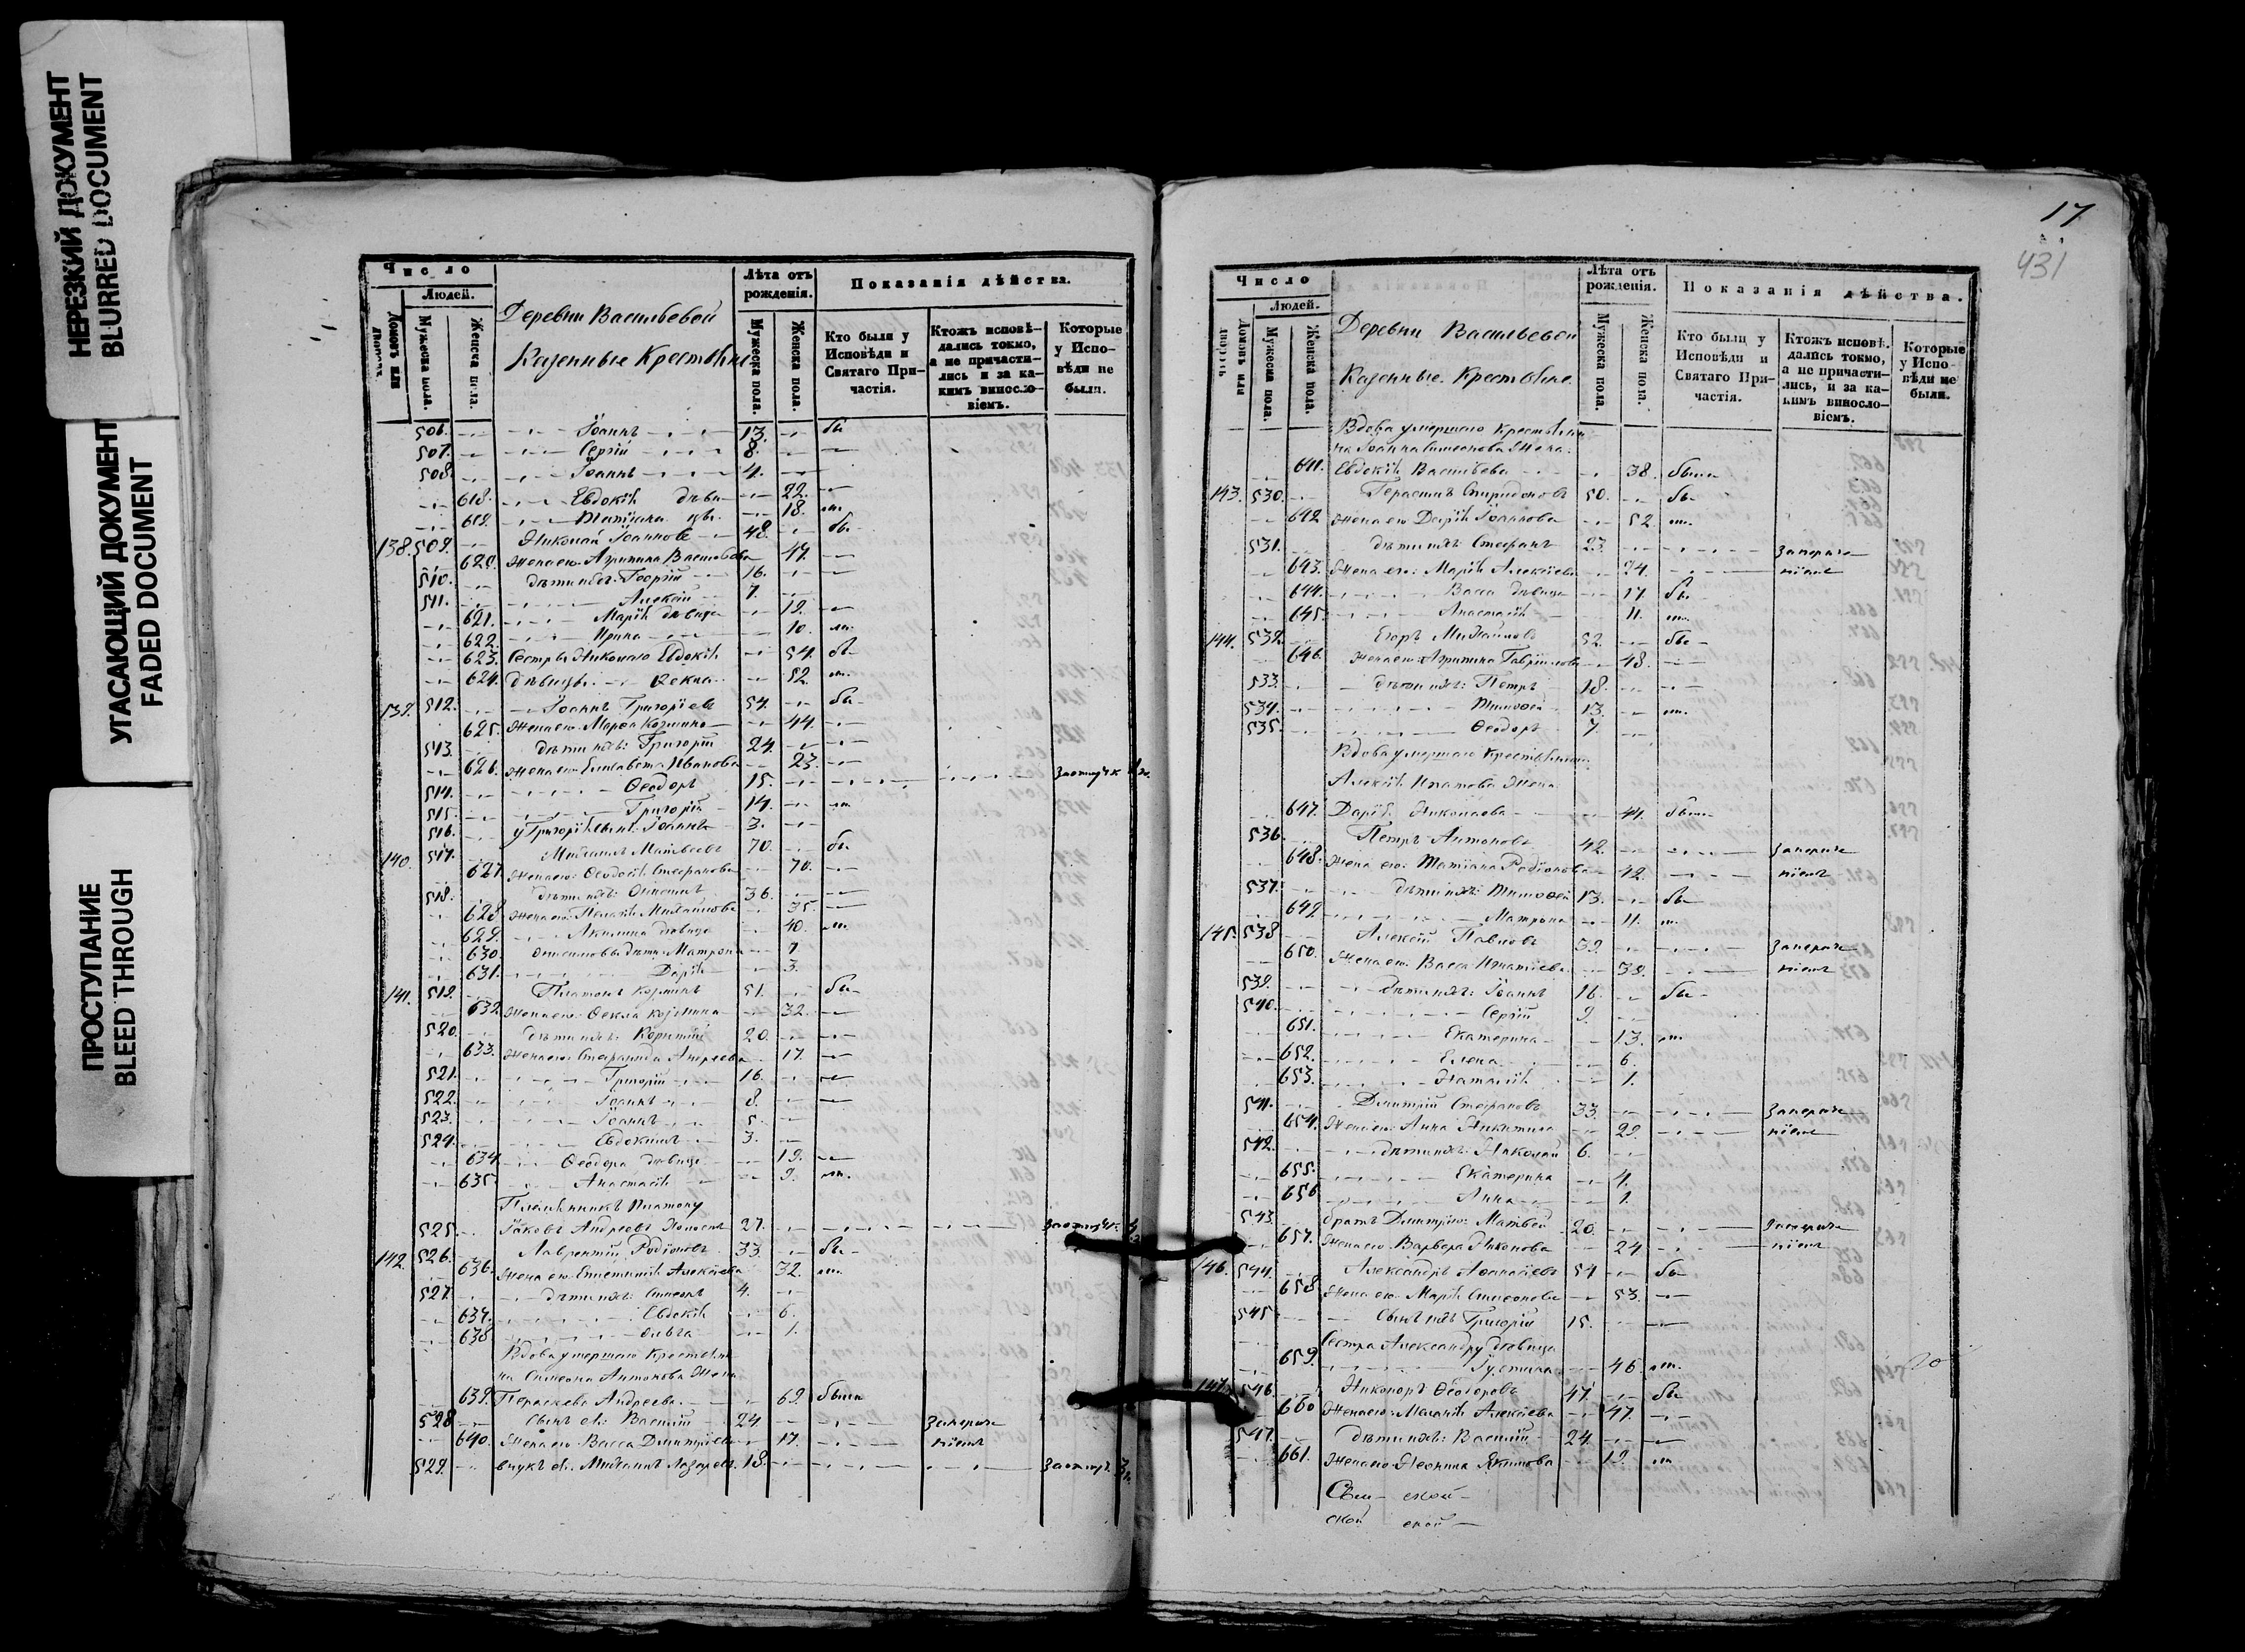 НЕРЕЗКИЙ ДОКУМЕНТ
BLURRED DOCUMENT
УГАСАЮЩИЙ ДОКУМЕНТ
FADED DOCUMENT
ПРОСТУПАНИЕ
BLEED THROUGH
Число
Людей.
Домовъ или
Мужеска пола.
Женска пола.
Деревни Васильевой
Казенные Крестьяне
Лѣта отъ рожденія.
Мужеска пола.
Женска пола.
Показанія дѣйства.
Кто были у Исповѣди и Святаго Причастія.
Ктожъ исповѣдались токмо, а не причастились и за какимъ винословіемъ.
Которые у Исповѣди не были.
506. Іоаннъ 13. бы
507. Сергій 8.
508. Іоаннъ 4.
618. Евдокія 22.
619. Татіана 18. ли
138. 509. Николай Іоанновъ 48. бы
620. Жена его Агрипина Васильева 47.
510. дѣти ихъ: Георгій 16.
511. Алексій 7.
621. Марія дѣвица 19.
622. Ирина 10. ли
623. Сестры Николаю Евдокія 54. бы
624. дѣвицы Ѳекла 52. ли
139. 512. Іоаннъ Григорьевъ 54. бы
625. Жена его Марѳа Козмина 44.
513. дѣти ихъ: Григорій 24.
626. Жена его Елисавета Иванова 23.
514. Ѳеодоръ 15.
515. Григорій 14. ли
516. у Григорія сынъ Іоаннъ 3.
140. 517. Михаилъ Матвѣевъ 70. бы
627. Жена его: Ѳеодосія Стефанова 70.
518. дѣти ихъ: Онисимъ 36.
628. Жена его: Пелагія Михайлова 35.
629. Акилина дѣвица 40. ли
630. Онисимовы дѣти: Матрона 7
631. Дарія 3.
141. 519. Платонъ Козминъ 51. бы
632. Жена его: Ѳекла Козмина 32.
520. дѣти ихъ: 20.
633. Жена его: Стефанида Андреева 17.
521. Григорій 16.
522. Іоаннъ 8.
523. Іоаннъ 5.
524. Евдокимъ 3.
634. Ѳеодора дѣвица 19.
635. Анастасія 9. ли
Племянникъ Платону
525. Іаковъ Андреевъ 27.
142. 526. Лаврентій Родіоновъ 33. бы
636. Жена его: Епистимія Алексіева 32. ли
527. дѣти ихъ: Симеонъ 4.
637. Евдокія 6.
638. Ольга 1.
Вдова умершаго Крестьяни
на Симеона Антонова Жена
639. Параскева Андреева 69. была
528. Сынъ ея: Василій 24.
640. Жена его Васса Дмитріева 17.
529. внукъ ея: Михаилъ Лазаревъ. 18.
17
431
Число
Людей.
Домовъ или
Мужеска пола.
Женска пола.
Деревни Васильевой
Казенные Крестьяне.
Лѣта отъ рожденія.
Мужеска пола.
Женска пола.
Показанія дѣйства.
Кто были у Исповѣди и Святаго Причастія.
Ктожъ исповѣдались токмо, а не причастились, и за какимъ винословіемъ.
Которые у Исповѣди не были.
Вдова умершаго Крестьяни
на Іоанна Симеонова Жена.
641. Евдокія Васильева 38. была
143. 530. Герасимъ Спиридоновъ 50. бы
642 Жена его Дарія Іоаннова 52. ли.
531. дѣти ихъ: Стефанъ 23.
643. Жена его: Марія Алексіева 24.
644. Васса дѣвица 17 бы
645. Анастасія 11. ли.
144. 532. Егоръ Михайловъ 52. бы
646. Жена его: Агрипина Гавриилова 48.
533. дѣти ихъ: Петръ 18.
534. Тимоѳей 13. ли.
535. Ѳеодоръ 7.
Вдова умершаго Крестьянина
Алексія Ипатова Жена
647. Дарія Николаева 44. была
536. Петръ Антоновъ 42.
648. Жена его: Татіана Родіонова 42.
537. дѣти ихъ: Тимоѳей 13. бы
649. Матрона 11. ли.
145. 538 Алексій Павловъ 39.
650. Жена его: Васса Игнатіева 39.
539. дѣти ихъ: Іоаннъ 16. бы
540. Сергій 9.
651. Екатерина 13. ли
652. Елена 6.
653. Наталія 1.
541. Дмитрій Стефановъ 33.
654. Жена его: Анна Никитина 29.
542. дѣти ихъ: Николай 6.
655. Екатерина 4.
656 Анна 1.
543. братъ Дмитрію: Матвей 20.
657. Жена его Варвара Никонова 24
146. 544. Александръ Аѳанасіевъ 54 бы
658 Жена его: Марія Симеонова 53.
545 Сынъ ихъ Григорій 15.
Сестра Александру дѣвица
659. Іустина 46. ли.
147. 546. Никаноръ Ѳеодоровъ 47. бы
660 Жена его: Меланія Алексіева 47.
547. дѣти ихъ: Василій 24.
661. Жена его Якимова 19. ли